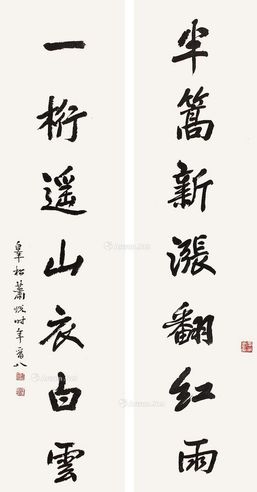 半篙新漲翻紅雨
一桁遥山衣白雲